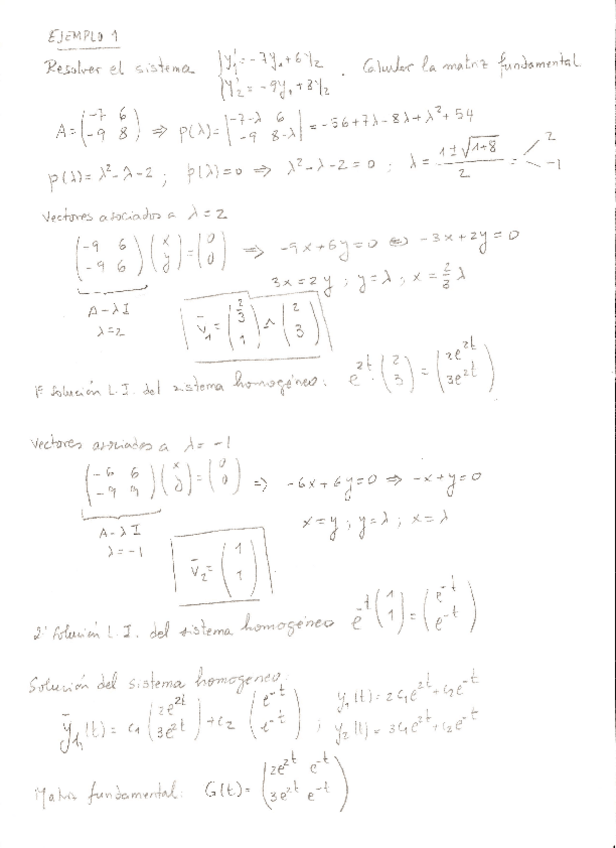 EJEMPLO 1
Resolver el sistema { y₁' = -7y₁ + 6y₂ . Calcular la matriz fundamental
{ y₂' = -9y₁ + 8y₂
A = (-7 6; -9 8) ⇒ p(λ) = |-7-λ 6; -9 8-λ| = -56 + 7λ - 8λ + λ² + 54
p(λ) = λ² - λ - 2 ; p(λ) = 0 ⇒ λ² - λ - 2 = 0 ; λ = (1 ± √(1+8))/2 = 2, -1
Vectores asociados a λ = 2
(-9 6; -9 6)(x; y) = (0; 0) ⇒ -9x + 6y = 0 ⇔ -3x + 2y = 0
3x = 2y ; y = λ ; x = 2/3 λ
A - λI
λ = 2
v̄₁ = (2/3; 1) ~ (2; 3)
1ª Solución L.I. del sistema homogéneo: e^{2t} · (2; 3) = (2e^{2t}; 3e^{2t})
Vectores asociados a λ = -1
(-6 6; -9 9)(x; y) = (0; 0) ⇒ -6x + 6y = 0 ⇒ -x + y = 0
x = y ; y = λ ; x = λ
A - λI
λ = -1
v̄₂ = (1; 1)
2ª Solución L.I. del sistema homogéneo e^{-t} (1; 1) = (e^{-t}; e^{-t})
Solución del sistema homogeneo:
ȳₕ(t) = c₁ (2e^{2t}; 3e^{2t}) + c₂ (e^{-t}; e^{-t}) ; y₁(t) = 2c₁e^{2t} + c₂e^{-t}
y₂(t) = 3c₁e^{2t} + c₂e^{-t}
Matriz fundamental: G(t) = (2e^{2t} e^{-t}; 3e^{2t} e^{-t})